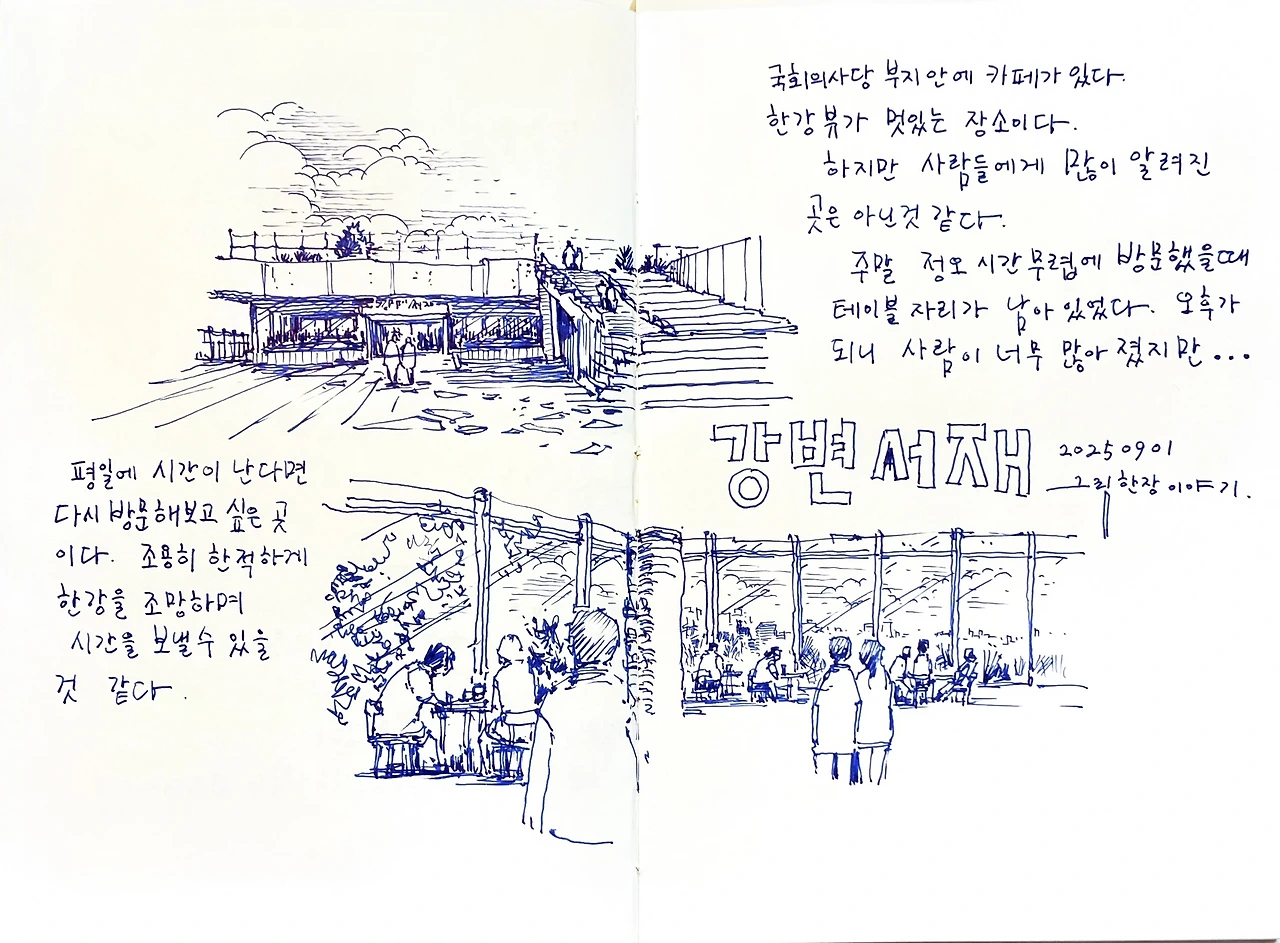 국회의사당 부지안에 카페가 있다.
한강뷰가 멋있는 장소이다.
하지만 사람들에게 많이 알려진
곳은 아닌것 같다.
주말 정오 시간 무렵에 방문했을때
테이블 자리가 남아 있었다. 오후가
되니 사람이 너무 많아 졌지만...
강변서재
2025 09 01
그림 한장 이야기.
강변서재
평일에 시간이 난다면
다시 방문해보고 싶은 곳
이다. 조용히 한적하게
한강을 조망하며
시간을 보낼수 있을
것 같다.